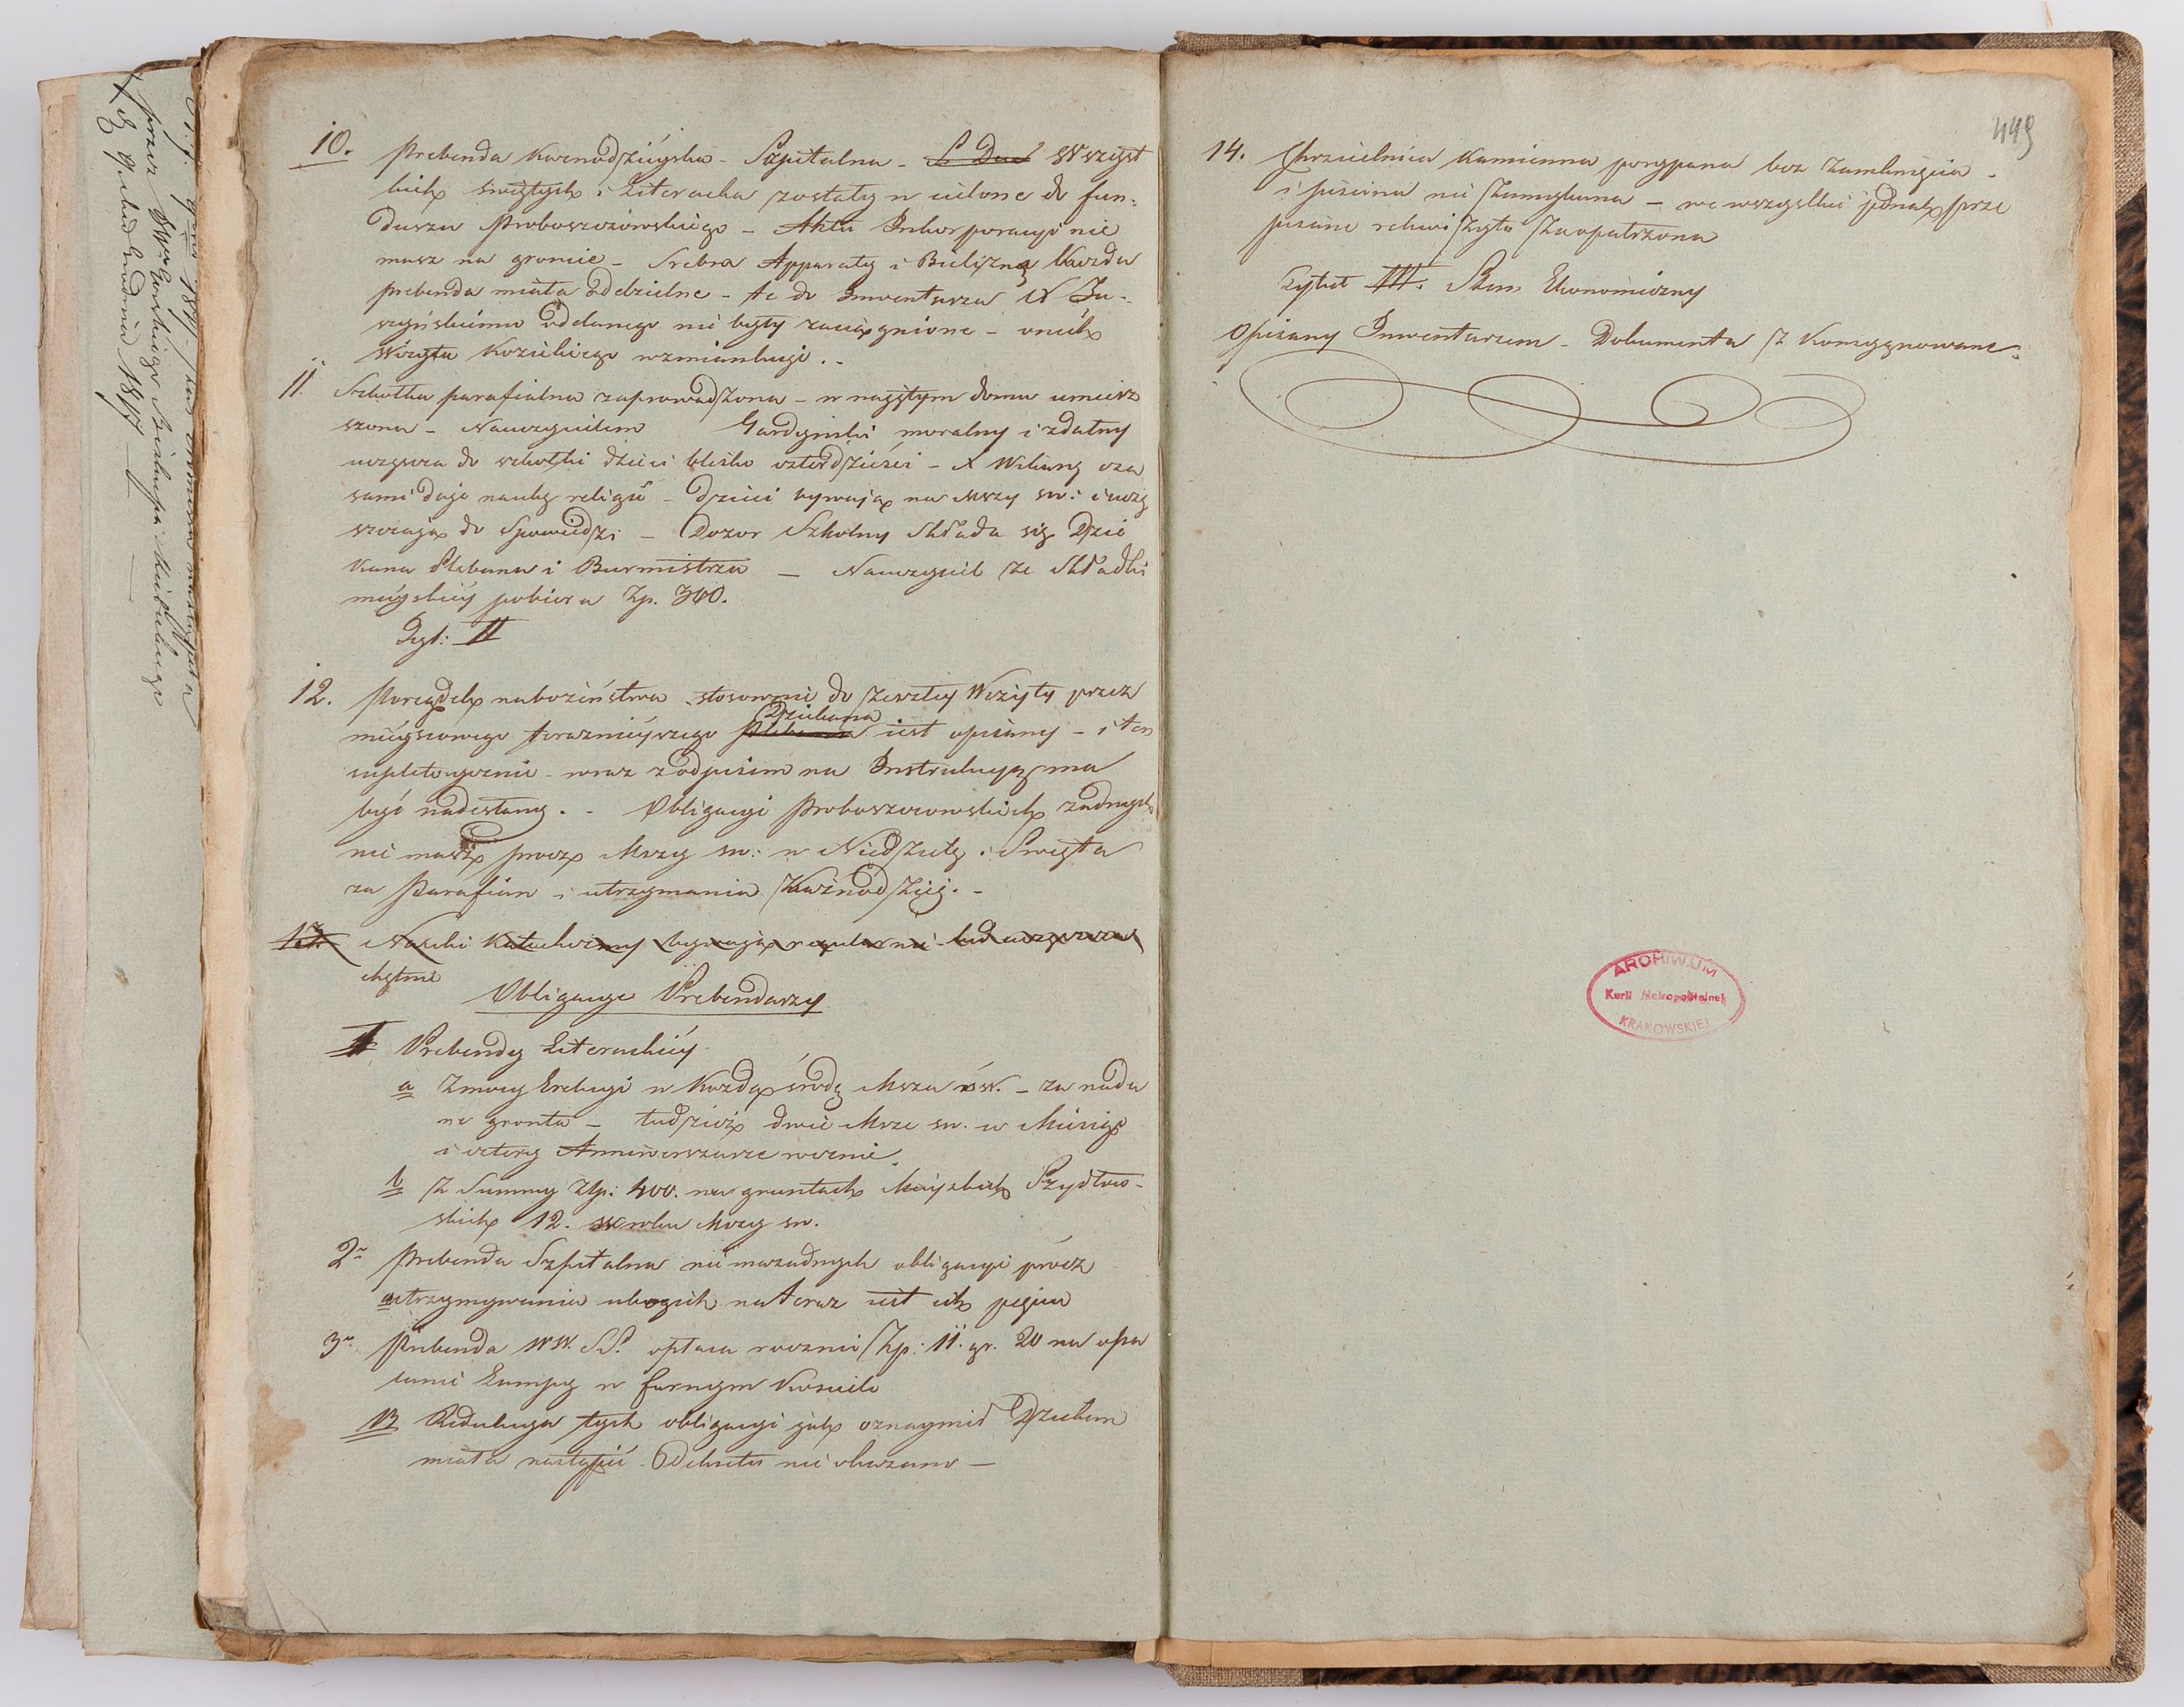 10. Prebenda Kaznodzieyska - Szpitalna - S. Duc Wszyst
kich Świętych i Literacka zostały wcielone do fun:
duszu Proboszczowskiego - Aktu Inkorporacyi nie
masz na gruncie - Srebra Apparaty i Bieliznę każda
prebenda miała oddzielne - te do Inwentarza X
oddanego nie były zaciągnione - onych
Wizyta Kozickiego wzmiankuje. -
11. Szkołka parafialna zaprowadzona - w naiętym domu umiesz
czona - Nauczycielem Gardyński moralny i zdatny
uczęszcza do szkołki dzieci blisko czterdzieści - X Wikary cza
sami daje naukę religii - dzieci bywają na Mszy sw: i uczę
szczają do Spowiedzi - Dozor Szkolny składa się Dzie
kana Plebana i Burmistrza - Nauczyciel ze składki
mieyskiey pobiera Zp. 300.
Tyt: II
12. Porządek nabożeństwa stosownie do zeszłey Wizyty przez
Dziekana
mieyscowego teraznieyszego Plebana iest opisany - i ten
wraz z odpisem na Instrukcyą ma
być nadesłany. - Obligacyi Proboszczowskich żadnych
nie masz procz Mszy sw: w Niedzielę i Swięta
za Parafian i utrzymania Kaznodziei. -
13. Nauki Katechizmy bywają regularnie lud uczęszcza
chętnie
Obligacye Prebendarzy
1 Prebendy Literackiey
a Z mocy Erekcyi w Każdą środę Msza sw. - za nada
ne gronta - tudzież dwie Msze sw. w Miesiąc
i cztery Anniwersarze rocznie.
b Z Summy Złp: 400. na gruntach Mieyskich Szydłow-
skich 12. w roku Mszy sw.
2o Prebenda Szpitalna nie ma żadnych obligacyi prócz
utrzymywania ubogich na teraz iest ich pięciu
3o Prebenda WW. SS. opłaca rocznie Zp: 11. gr. 20 na opa
lanie Lampy w farnym Kosciele
NB Redukcya tych obligacyi jak oznaymił Dziekan
miała nastąpić - Dekretu nie okazano -
449
14. Chrzcielnica Kamienna bez zamknięcia -
i piscina nie zamykana - we wszystkie jednak prze
pisane rekwizyta zaopatrzona
Tytuł III. Stan Ekonomiczny
Opisany Inwentarzem - Dokumenta z konsygnowane.
ARCHIWUM
Kurii Metropolitalnej
KRAKOWSKIEJ